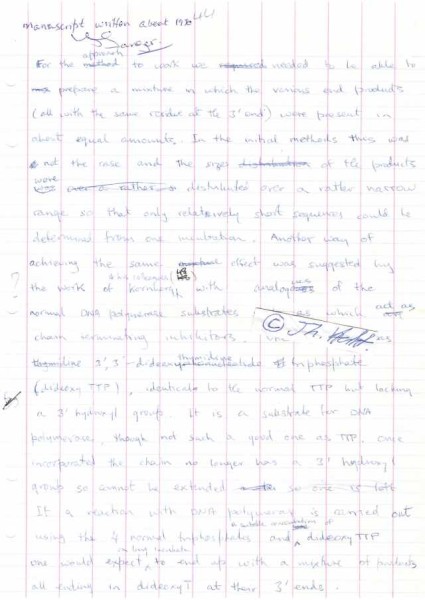 manuscript written about 1980
F Sanger
approach
For the method to work we required needed to be able to
prepare a mixture in which the various end products
(all with the same residue at the 3' end) were present in
about equal amounts. In the initial methods this was
not the case and the sizes distribution of the products
were distributed over a rather narrow
range so that only relatively short sequences could be
determined from one incubation. Another way of
achieving the same effect was suggested by
& his colleagues
the work of Kornberg with analogues of the
normal DNA polymerase substrates which act as
chain terminating inhibitors. as
thymidine
thymidine 3', 3'-dideoxy triphosphate
(dideoxy TTP), identical to the normal TTP but lacking
a 3' hydroxyl group. It is a substrate for DNA
polymerase, though not such a good one as TTP. Once
incorporated the chain no longer has a 3' hydroxyl
group so cannot be extended so one is left
If a reaction with DNA polymerase is carried out
a suitable concentration of
using the 4 normal triphosphates and dideoxy TTP
one would expect to end up with a mixture of products
all ending in dideoxy T at their 3' ends.
?